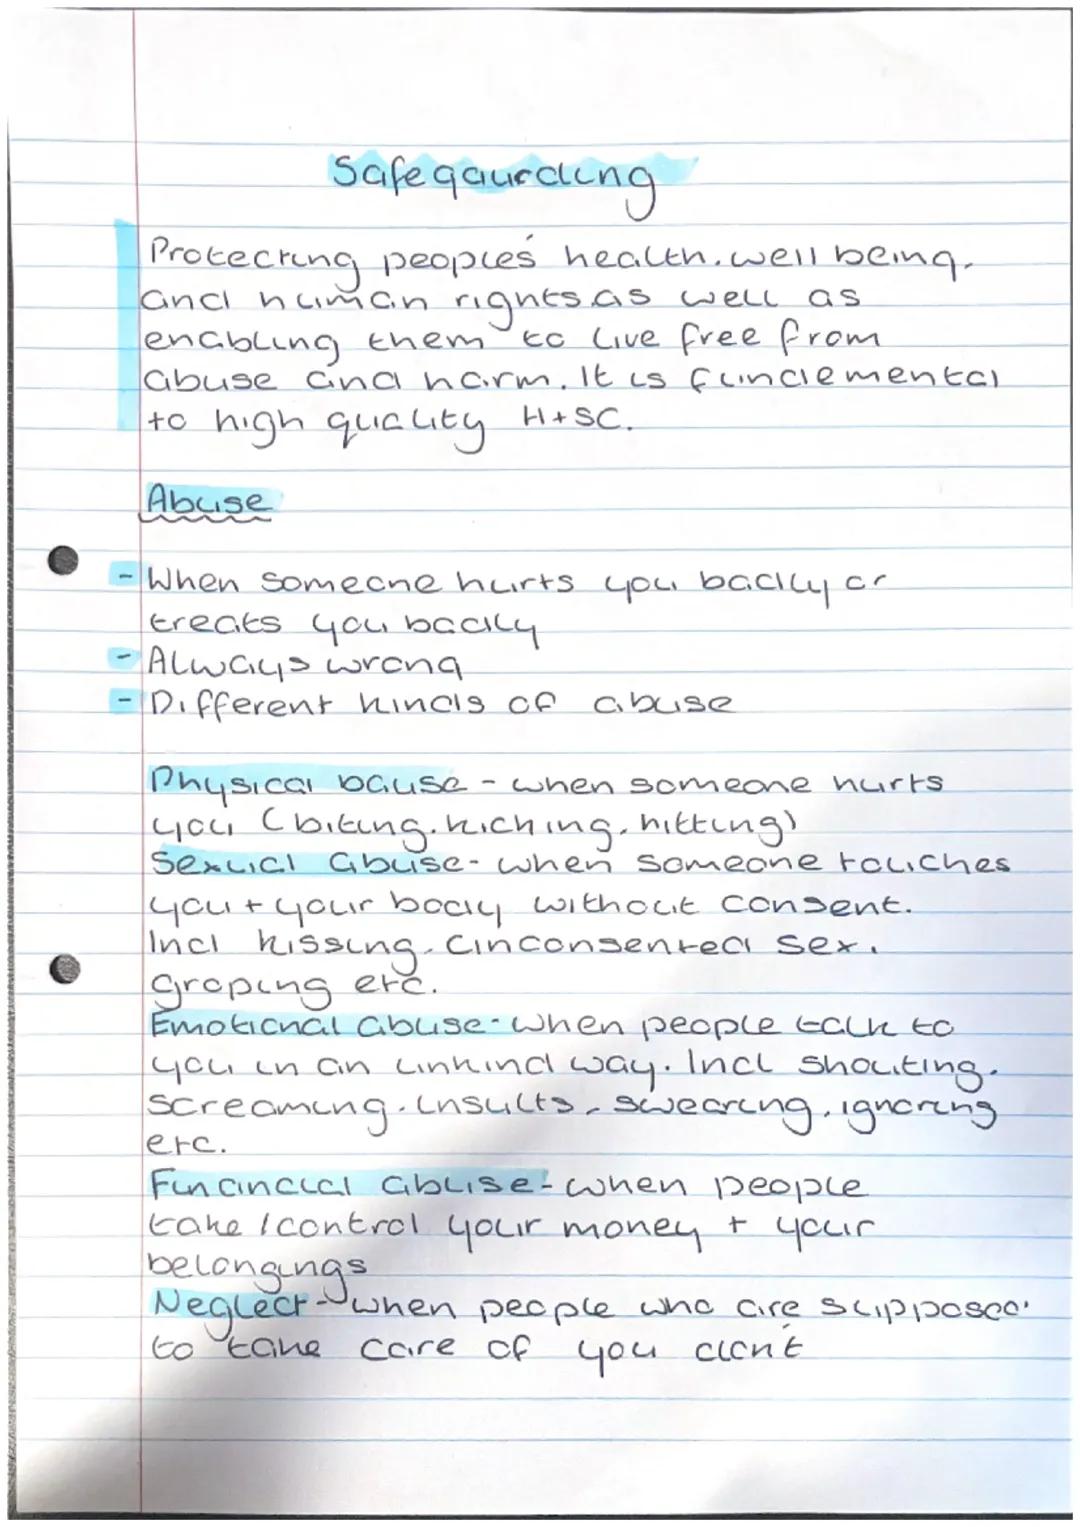 Safegaurding
Protecting people's health, well being,
and human rights as well as
enabling them to live free from
abuse and harm. It is fundemental
to high quality H+SC.
Abuse
- When someone hurts you badly or
treats you badly
- Always wrong
- Different kinds of abuse
Physical bause - when someone hurts
you (biting, kicking, hitting)
Sexual abuse - when someone touches
you + your body without consent.
Incl kissing, unconsented sex,
groping etc.
Emotional abuse - when people talk to
you in an unkind way. Incl shouting,
screaming, insults, swearing, ignoring
etc.
Financial abuse - when people
take / control your money + your
belongings
Neglect - when people who are supposed
to take care of you don't